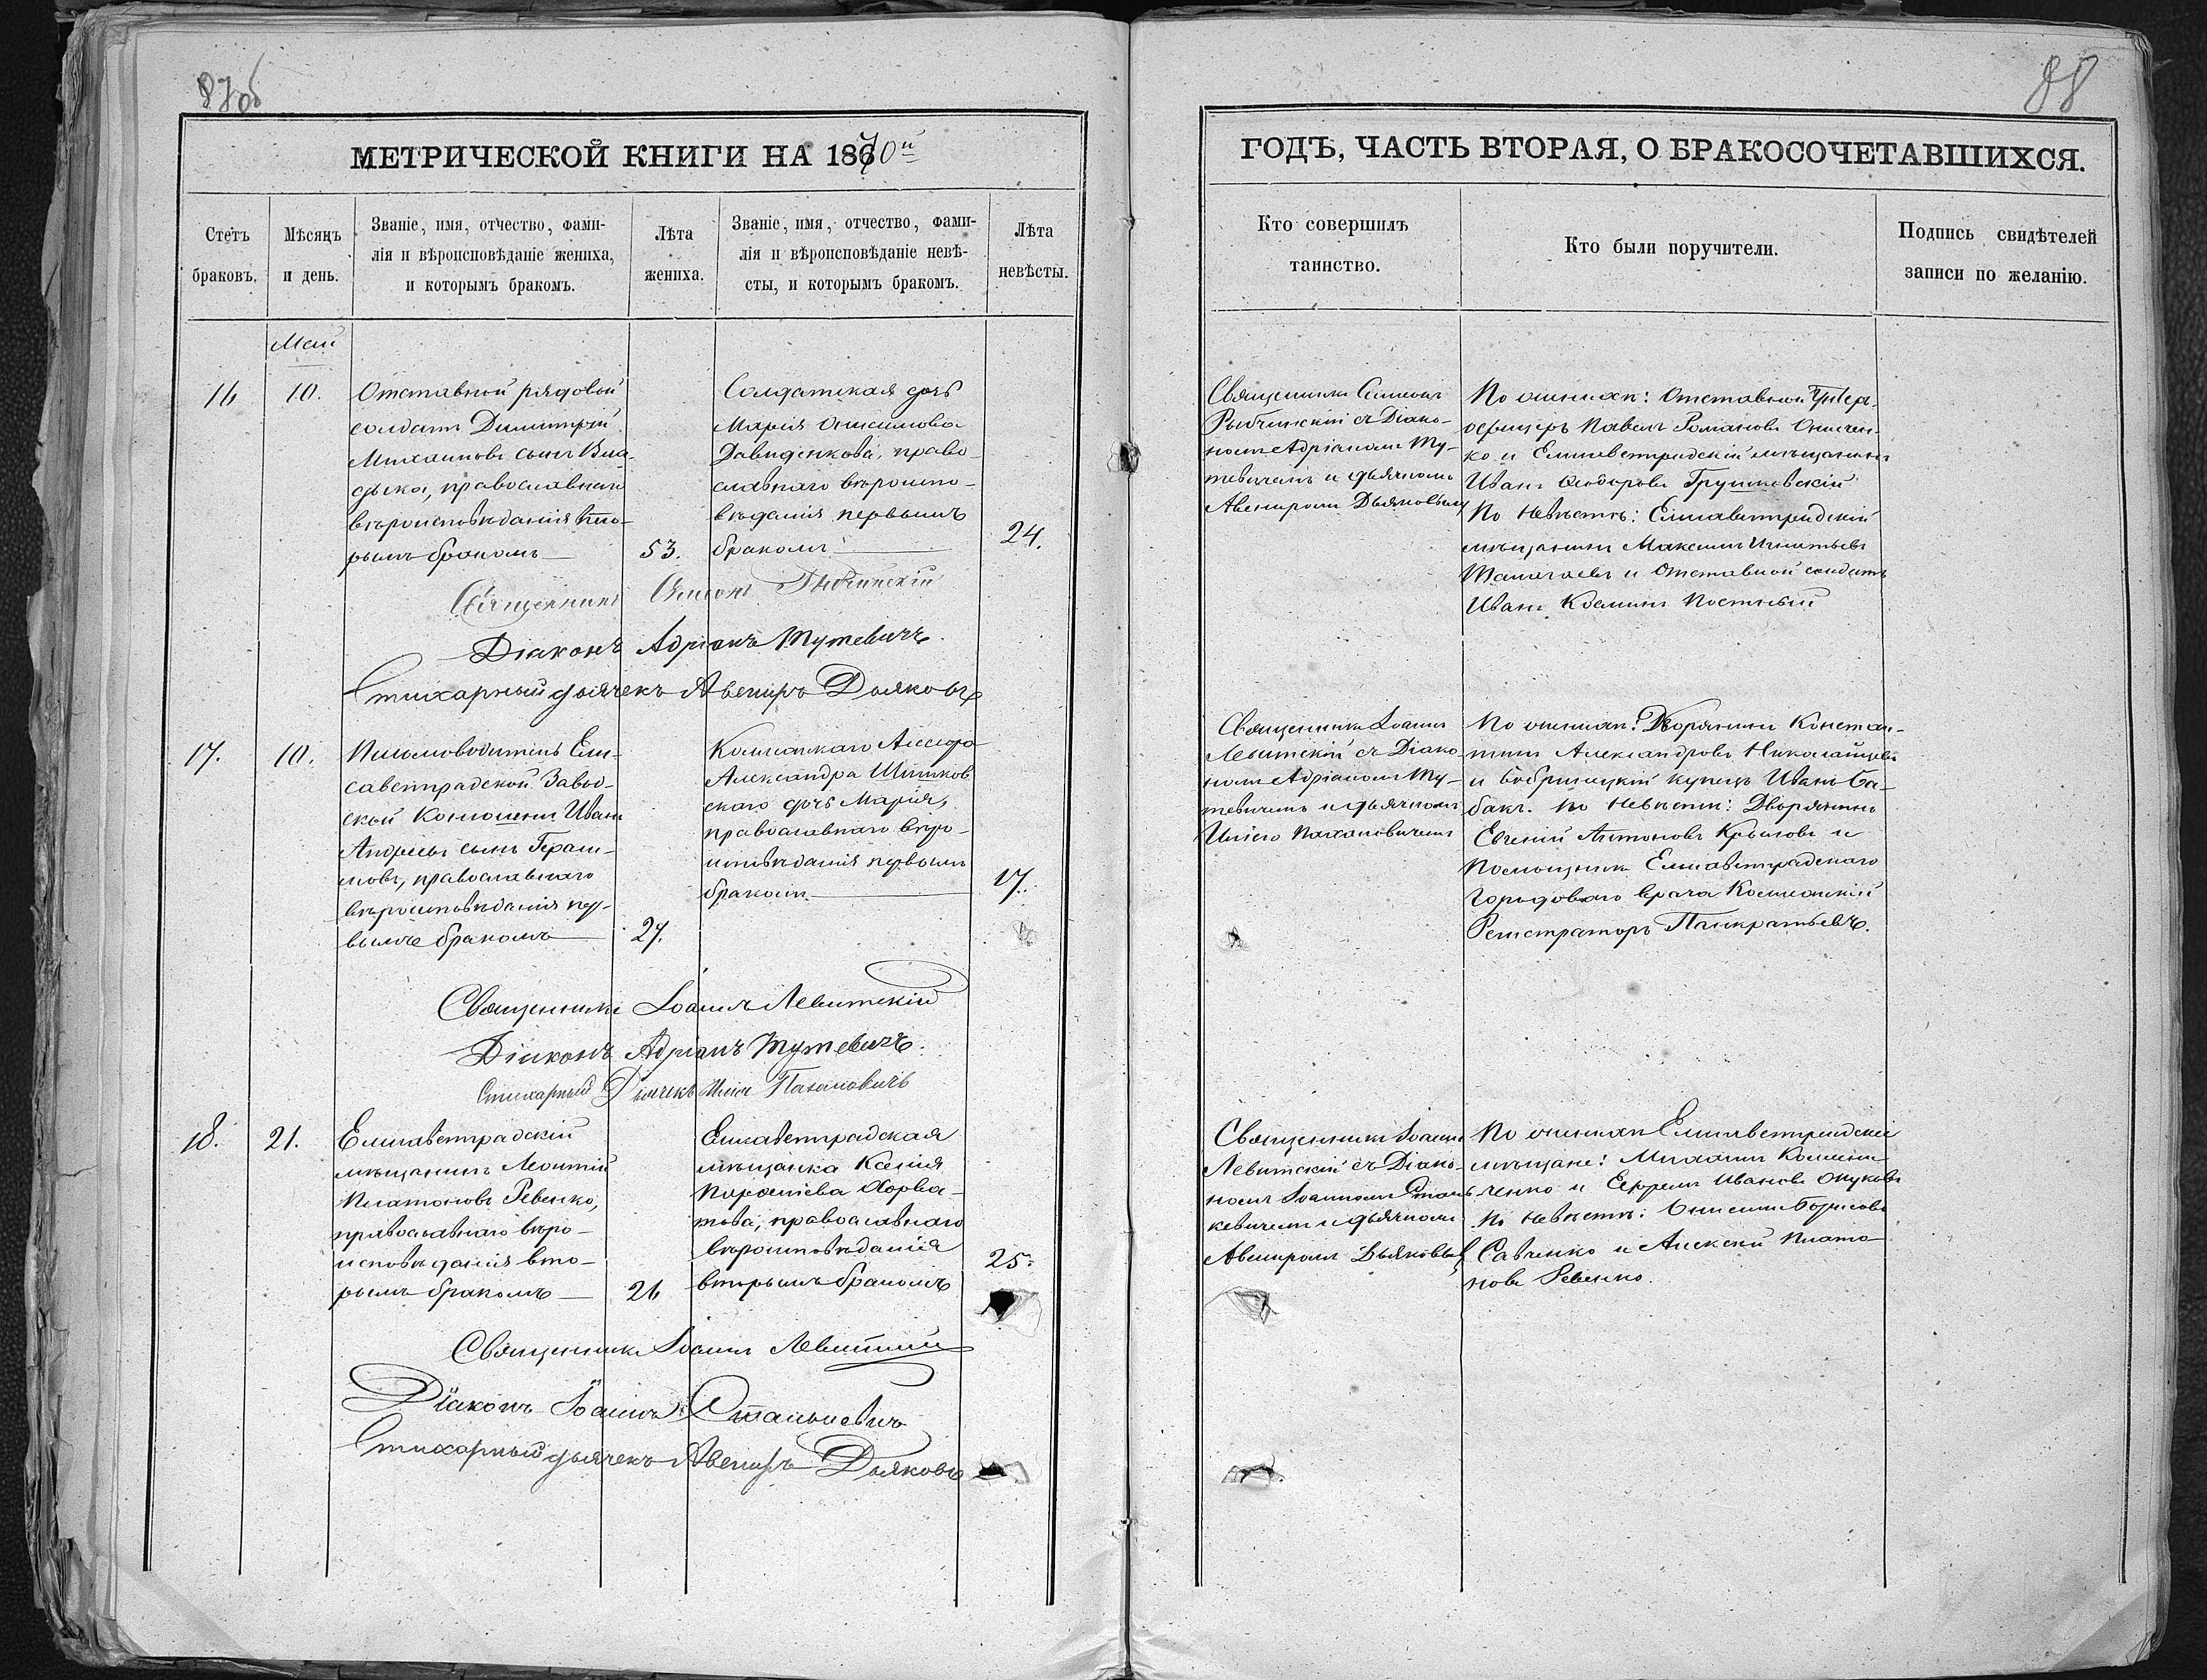 87об
88
МЕТРИЧЕСКОЙ КНИГИ НА 1870й
ГОДЪ, ЧАСТЬ ВТОРАЯ, О БРАКОСОЧЕТАВШИХСЯ.
Счетъ
браковъ.
Мѣсяцъ
и день.
Званіе, имя, отчество, фами-
лія и вѣроисповѣданіе жениха,
и которымъ бракомъ.
Лѣта
жениха.
Званіе, имя, отчество, фами-
лія и вѣроисповѣданіе невѣ-
сты, и которымъ бракомъ.
Лѣта
невѣсты.
Кто совершилъ
таинство.
Кто были поручители.
Подпись свидѣтелей
записи по желанію.
Май
16
10.
Отставной рядовой
солдатъ Димитрій
Михаиловъ сынъ
православнаго
вѣроисповѣданія вто-
рымъ бракомъ
53.
Солдатская дочь
Марія Онисимова
Давиденкова, право-
славнаго вѣроиспо-
вѣданія первымъ
бракомъ
24.
Священникъ Симеонъ
Рыбчинскій съ Діако-
номъ Адріаномъ Ту-
тевичемъ и дьячкомъ
Авениромъ Дьяковымъ
По женихѣ: Отставной Унтеръ-
офицеръ Павелъ Романовъ Онищен-
ко и Елисаветградскій мѣщанинъ
Иванъ Ѳеодоровъ Грушевскій
По невѣстѣ: Елисаветградскій
мѣщанинъ Максимъ Игнатьевъ
и Отставной солдатъ
Иванъ Козминъ Постный
Священникъ Симеонъ Рыбчинскій
Діаконъ Адріанъ Тутевичъ.
Стихарный дьячекъ Авениръ Дьяковъ
17.
10.
Письмоводитель Ели-
саветградской Завод-
ской Конюшни Иванъ
Андреевъ сынъ Гераси-
мовъ, православнаго
вѣроисповѣданія пер-
вымъ бракомъ
27.
Коллежскаго Ассесора
Александра Шишков-
скаго дочь Марія,
православнаго вѣро-
исповѣданія первымъ
бракомъ
17.
Священникъ Іоаннъ
Левитскій съ Діако-
номъ Адріаномъ Ту-
тевичемъ и дьячкомъ
Иліею Пахановичемъ
По женихѣ: Дворянинъ Констан-
тинъ Александровъ Николайцевъ
и Бобринецкій купецъ Иванъ Ба-
бакъ. По невѣстѣ: Дворянинъ
Евгеній Антоновъ Крыловъ и
Помощникъ Елисаветградскаго
Городоваго врача Коллежскій
Регистраторъ Панкратьевъ.
Священникъ Іоаннъ Левитскій
Діаконъ Адріанъ Тутевичъ.
Стихарный Дьячекъ Илія Пахановичъ
18.
21.
Елисаветградскій
мѣщанинъ Леонтій
Платоновъ Ревенко,
православнаго вѣро-
исповѣданія вто-
рымъ бракомъ
26
Елисаветградская
мѣщанка Ксенія
Хорва-
това, православнаго
вѣроисповѣданія
вторымъ бракомъ
25.
Священникъ Іоаннъ
Левитскій съ Діако-
номъ Іоанномъ Стань-
кевичемъ и дьячкомъ
Авениромъ Дьяковымъ
По женихѣ Елисаветградскіе
мѣщане: Михаилъ
и Ефремъ Ивановъ
По невѣстѣ: Онисимъ Борисовъ
Савченко и Алексѣй Плато-
новъ Ревенко.
Священникъ Іоаннъ Левитскій
Діаконъ Іоаннъ Станькевичъ
Стихарный дьячекъ Авениръ Дьяковъ